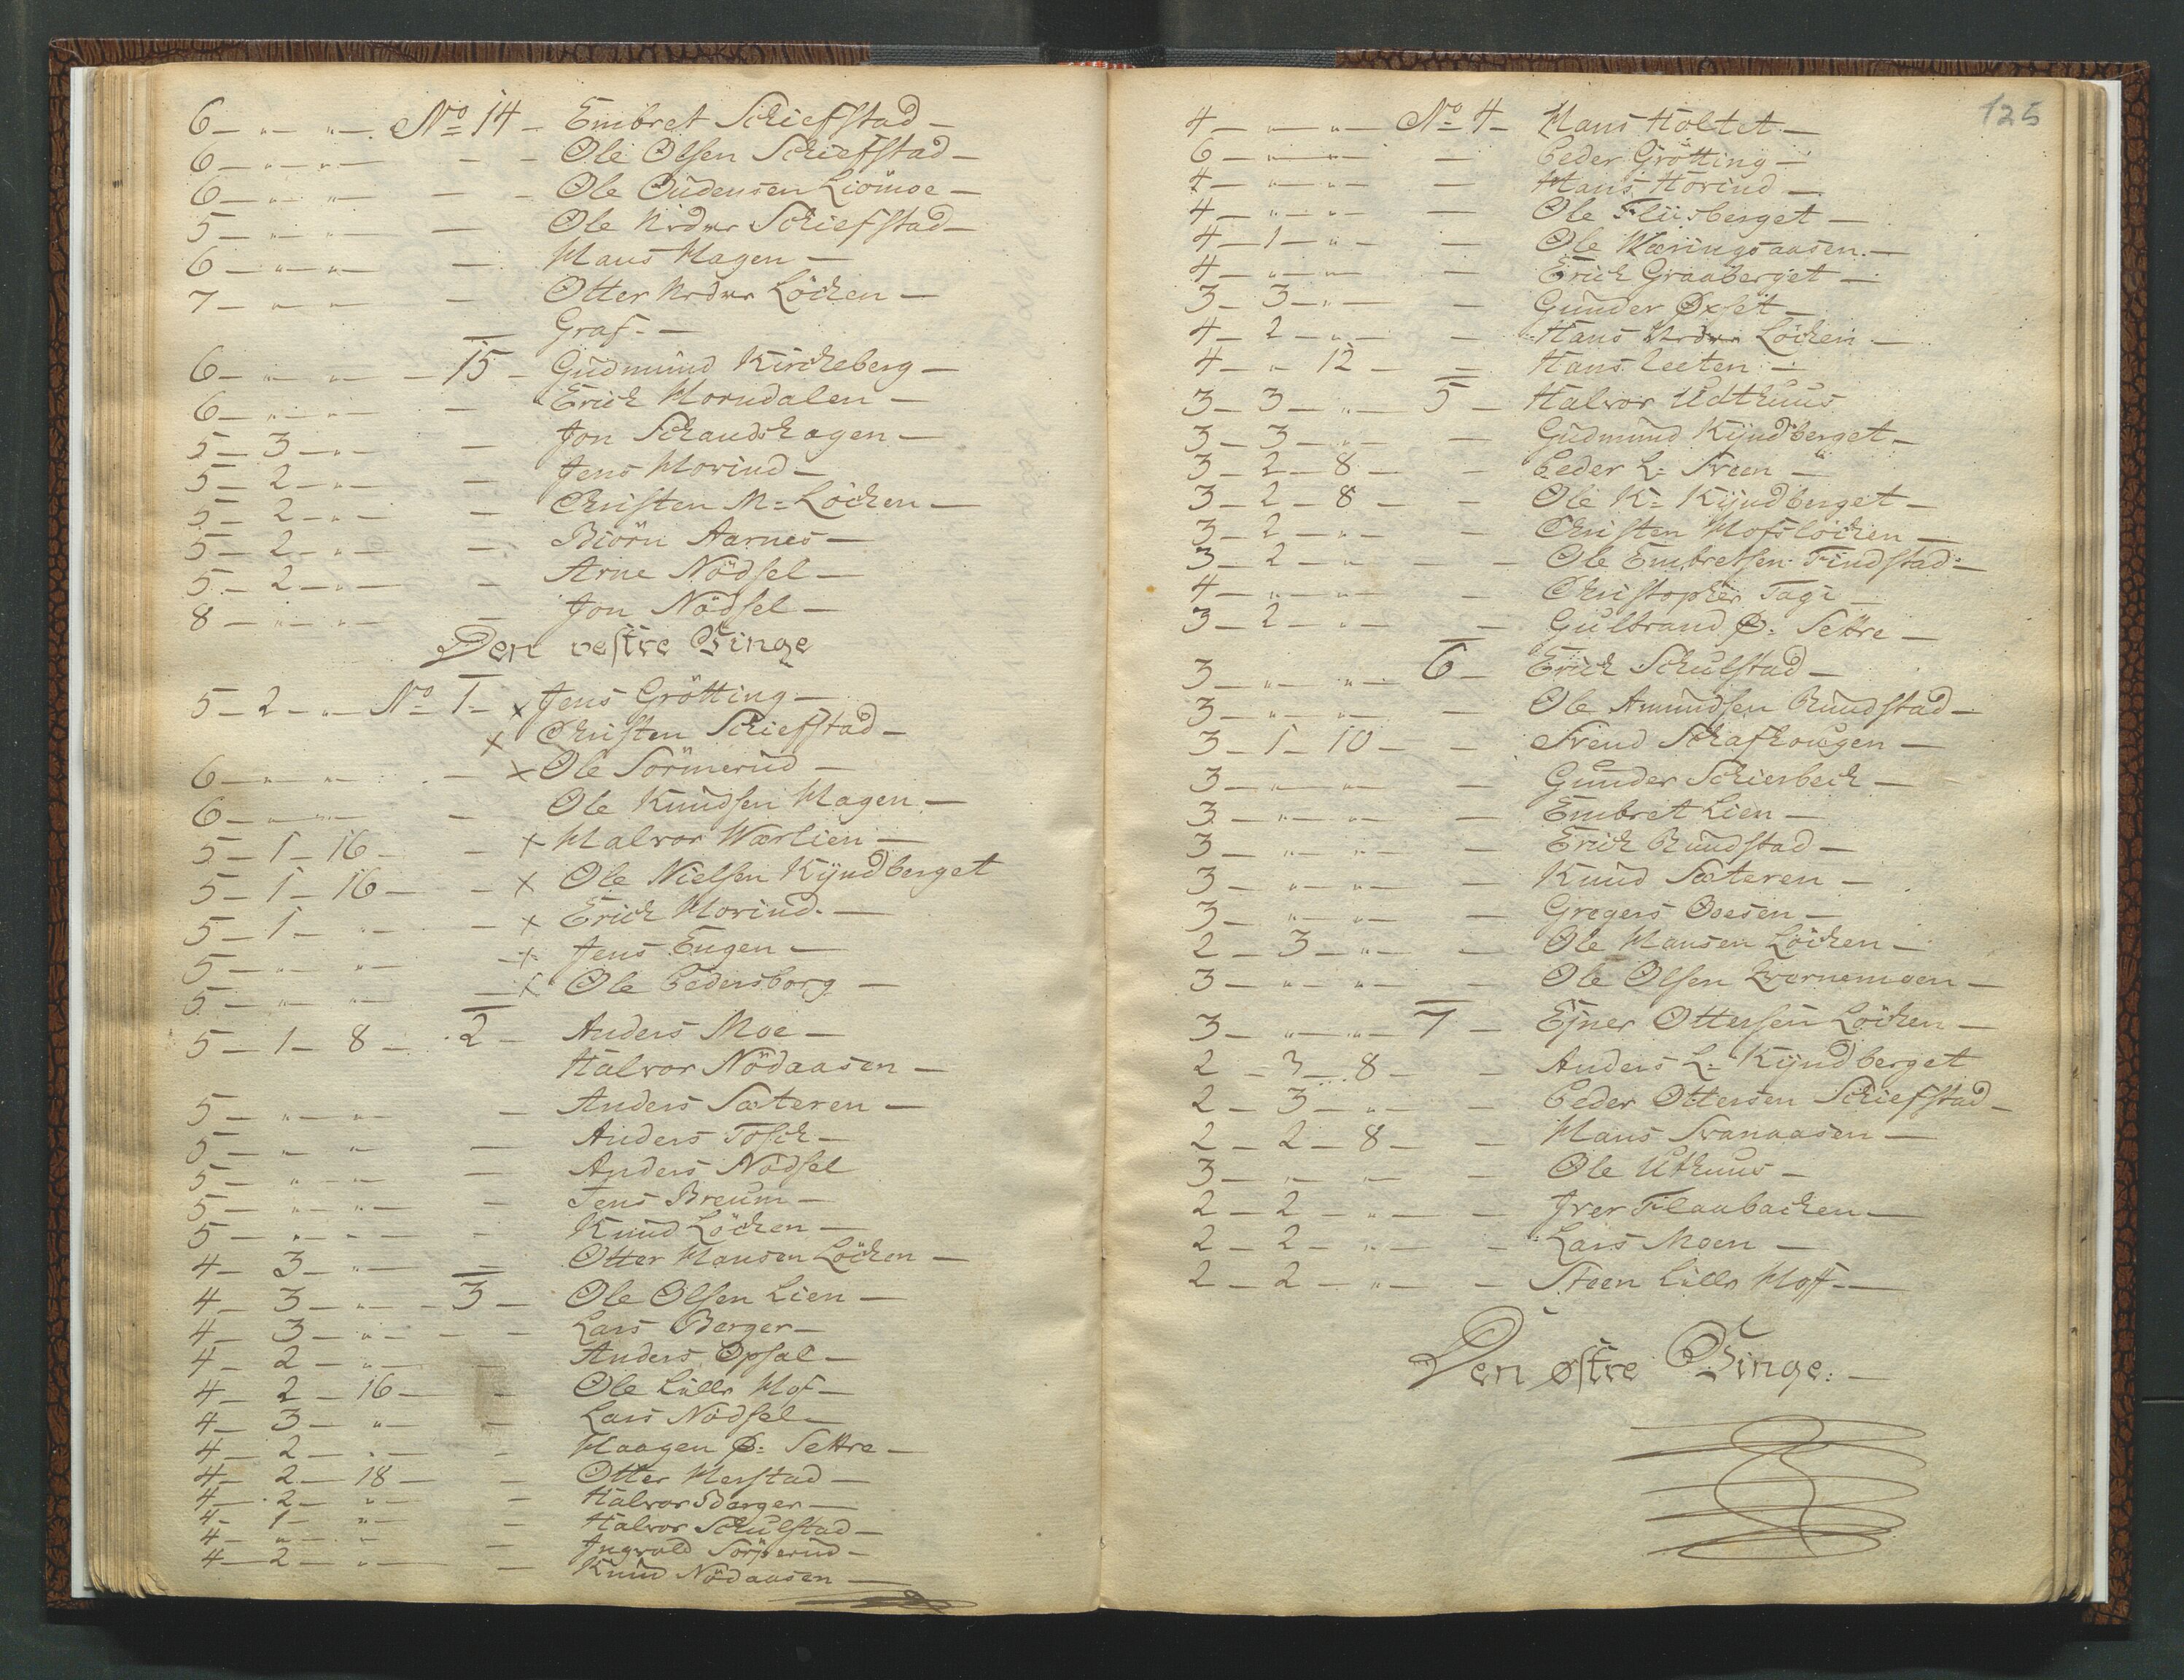 6 - „ - „ - No 14 - Embret Schiefstad -
6 - „ - „ - - Ole Olsen Schiefstad -
6 - „ - „ - - Ole Oudensen Liömoe -
5 - „ - „ - - Ole Schiefstad -
6 - „ - „ - - Hans Hagen -
7 - „ - „ - - Otter Löchen -
Graf. -
6 - „ - „ - 15 - Gudmund Kircheberg -
6 - „ - „ - - Erich Horndalen -
5 - 3 - „ - - Jon Schandshagen -
5 - 2 - „ - - Jens Horind -
5 - 2 - „ - - Christen M= Löchen -
5 - 2 - „ - - Biörn Aarnes -
5 - 2 - „ - - Arne Nödsel -
8 - „ - „ - - Jon Nödsel -
Den vestre Vinge
5 - 2 - „ - No 1 - x Jens Grötting -
x Christen Schiefstad -
6 - „ - „ - - x Ole Sörmerud -
6 - „ - „ - - Ole Knudsen Hagen -
5 - 1 - 16 - - x Halvor Værlien -
5 - 1 - 16 - - x Ole Nielsen Kÿndberget
5 - 1 - „ - - x Erich Horind. -
5 - „ - „ - - x Jens Engen -
5 - „ - „ - - x Ole Pedersborg -
5 - 1 - 8 - 2 - Anders Moe -
Halvor Nödaasen -
5 - „ - „ - - Anders Sæteren -
5 - „ - „ - - Anders Tosch -
5 - „ - „ - - Anders Nödsel
5 - „ - „ - - Jens Breum -
5 - „ - „ - - Knud Löchen -
4 - 3 - „ - - Otter Hansen Löchen -
4 - 3 - „ - 3 - Ole Olsen Lien -
4 - 3 - „ - - Lars Berger -
4 - 2 - „ - - Anders Opsal -
4 - 2 - 16 - - Ole Lille Hof -
4 - 3 - „ - - Lars Nödsel -
4 - 2 - „ - - Haagen Ø: Settre -
4 - 2 - 18 - - Otter Herstad -
4 - 2 - „ - - Halvor Berger -
4 - 1 - „ - - Halvor Schulstad -
4 - „ - „ - - Ingvald -
4 - 2 - „ - - Knud Nödaasen -
125
4 - „ - „ - No 4 - Hans Holtet -
6 - „ - „ - - Peder Grötting -
4 - „ - „ - - Hans Horind -
4 - „ - „ - - Ole Fliisberget -
4 - 1 - „ - - Ole Væringsaasen. -
4 - „ - „ - - Erich Graaberget -
3 - 3 - „ - - Gunder Øxset -
4 - 2 - „ - - Hans Löchen -
4 - „ - 12 - - Hans Leeten -
3 - 3 - „ - 5 - Halvor Udthuus
3 - 3 - „ - - Gudmund Kÿndberget -
3 - 2 - 8 - - Peder L= Sveen -
3 - 2 - 8 - - Ole K= Kÿndberget -
3 - 2 - „ - - Christen Hofslöchen -
3 - 2 - „ - - Ole Embretsen Findstad -
4 - „ - „ - - Christopher Tagi -
3 - 2 - „ - - Gulbrand Ø: Settre -
3 - „ - „ - 6 - Erich Schulstad -
3 - „ - „ - - Ole Amundsen Rundstad -
3 - 1 - 10 - - Svend Schafhougen -
3 - „ - „ - - Gunder Schierbech -
3 - „ - „ - - Embret Lien -
3 - „ - „ - - Erich Rundstad -
3 - „ - „ - - Knud Sæteren -
3 - „ - „ - - Gregers Osesen -
2 - 3 - „ - - Ole Hansen Löchen -
3 - „ - „ - - Ole Olsen Kværnemoen -
3 - „ - „ - 7 - Ejner Ottersen Löchen -
2 - 3 - 8 - - Anders L= Kÿndberget
2 - 3 - „ - - Peder Ottersen Schiefstad -
2 - 2 - 8 - - Hans Svanaasen -
3 - „ - „ - - Ole Uthuus -
2 - 2 - „ - - Iver Flaabachen -
2 - 2 - „ - - Lars Moen -
2 - 2 - „ - - Steen Lille Hoff -
Den østre Vinge: -